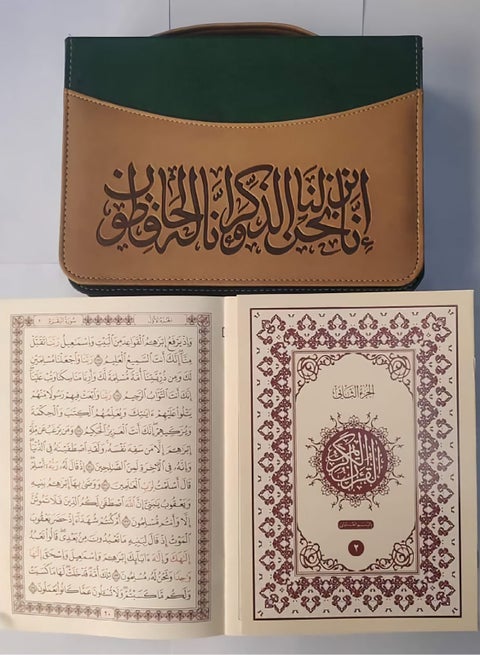 إِنَّا نَحْنُ نَزَّلْنَا الذِّكْرَ وَإِنَّا لَهُ لَحَافِظُونَ
الجزء الأول
سورة البقرة
وَإِذْ يَرْفَعُ إِبْرَٰهِـۧمُ ٱلْقَوَاعِدَ مِنَ ٱلْبَيْتِ وَإِسْمَٰعِيلُ رَبَّنَا تَقَبَّلْ
مِنَّآ إِنَّكَ أَنتَ ٱلسَّمِيعُ ٱلْعَلِيمُ ١٢٧ رَبَّنَا وَٱجْعَلْنَا مُسْلِمَيْنِ
لَكَ وَمِن ذُرِّيَّتِنَآ أُمَّةً مُّسْلِمَةً لَّكَ وَأَرِنَا مَنَاسِكَنَا وَتُبْ عَلَيْنَآ
إِنَّكَ أَنتَ ٱلتَّوَّابُ ٱلرَّحِيمُ ١٢٨ رَبَّنَا وَٱبْعَثْ فِيهِمْ رَسُولًا مِّنْهُمْ
يَتْلُوا۟ عَلَيْهِمْ ءَايَٰتِكَ وَيُعَلِّمُهُمُ ٱلْكِتَٰبَ وَٱلْحِكْمَةَ
وَيُزَكِّيهِمْ إِنَّكَ أَنتَ ٱلْعَزِيزُ ٱلْحَكِيمُ ١٢٩ وَمَن يَرْغَبُ عَن مِّلَّةِ
إِبْرَٰهِـۧمَ إِلَّا مَن سَفِهَ نَفْسَهُۥ وَلَقَدِ ٱصْطَفَيْنَٰهُ فِى ٱلدُّنْيَا
وَإِنَّهُۥ فِى ٱلْءَاخِرَةِ لَمِنَ ٱلصَّٰلِحِينَ ١٣٠ إِذْ قَالَ لَهُۥ رَبُّهُۥٓ أَسْلِمْ
قَالَ أَسْلَمْتُ لِرَبِّ ٱلْعَٰلَمِينَ ١٣١ وَوَصَّىٰ بِهَآ إِبْرَٰهِـۧمُ بَنِيهِ
وَيَعْقُوبُ يَٰبَنِىَّ إِنَّ ٱللَّهَ ٱصْطَفَىٰ لَكُمُ ٱلدِّينَ فَلَا تَمُوتُنَّ
إِلَّا وَأَنتُم مُّسْلِمُونَ ١٣٢ أَمْ كُنتُمْ شُهَدَآءَ إِذْ حَضَرَ يَعْقُوبَ
ٱلْمَوْتُ إِذْ قَالَ لِبَنِيهِ مَا تَعْبُدُونَ مِنۢ بَعْدِى قَالُوا۟ نَعْبُدُ
إِلَٰهَكَ وَإِلَٰهَ ءَابَآئِكَ إِبْرَٰهِـۧمَ وَإِسْمَٰعِيلَ وَإِسْحَٰقَ إِلَٰهًا
وَٰحِدًا وَنَحْنُ لَهُۥ مُسْلِمُونَ ١٣٣ تِلْكَ أُمَّةٌ قَدْ خَلَتْ لَهَا مَا كَسَبَتْ
وَلَكُم مَّا كَسَبْتُمْ وَلَا تُسْـَٔلُونَ عَمَّا كَانُوا۟ يَعْمَلُونَ ١٣٤
٢٠
الجزء الثاني
القرآن الكريم
٢